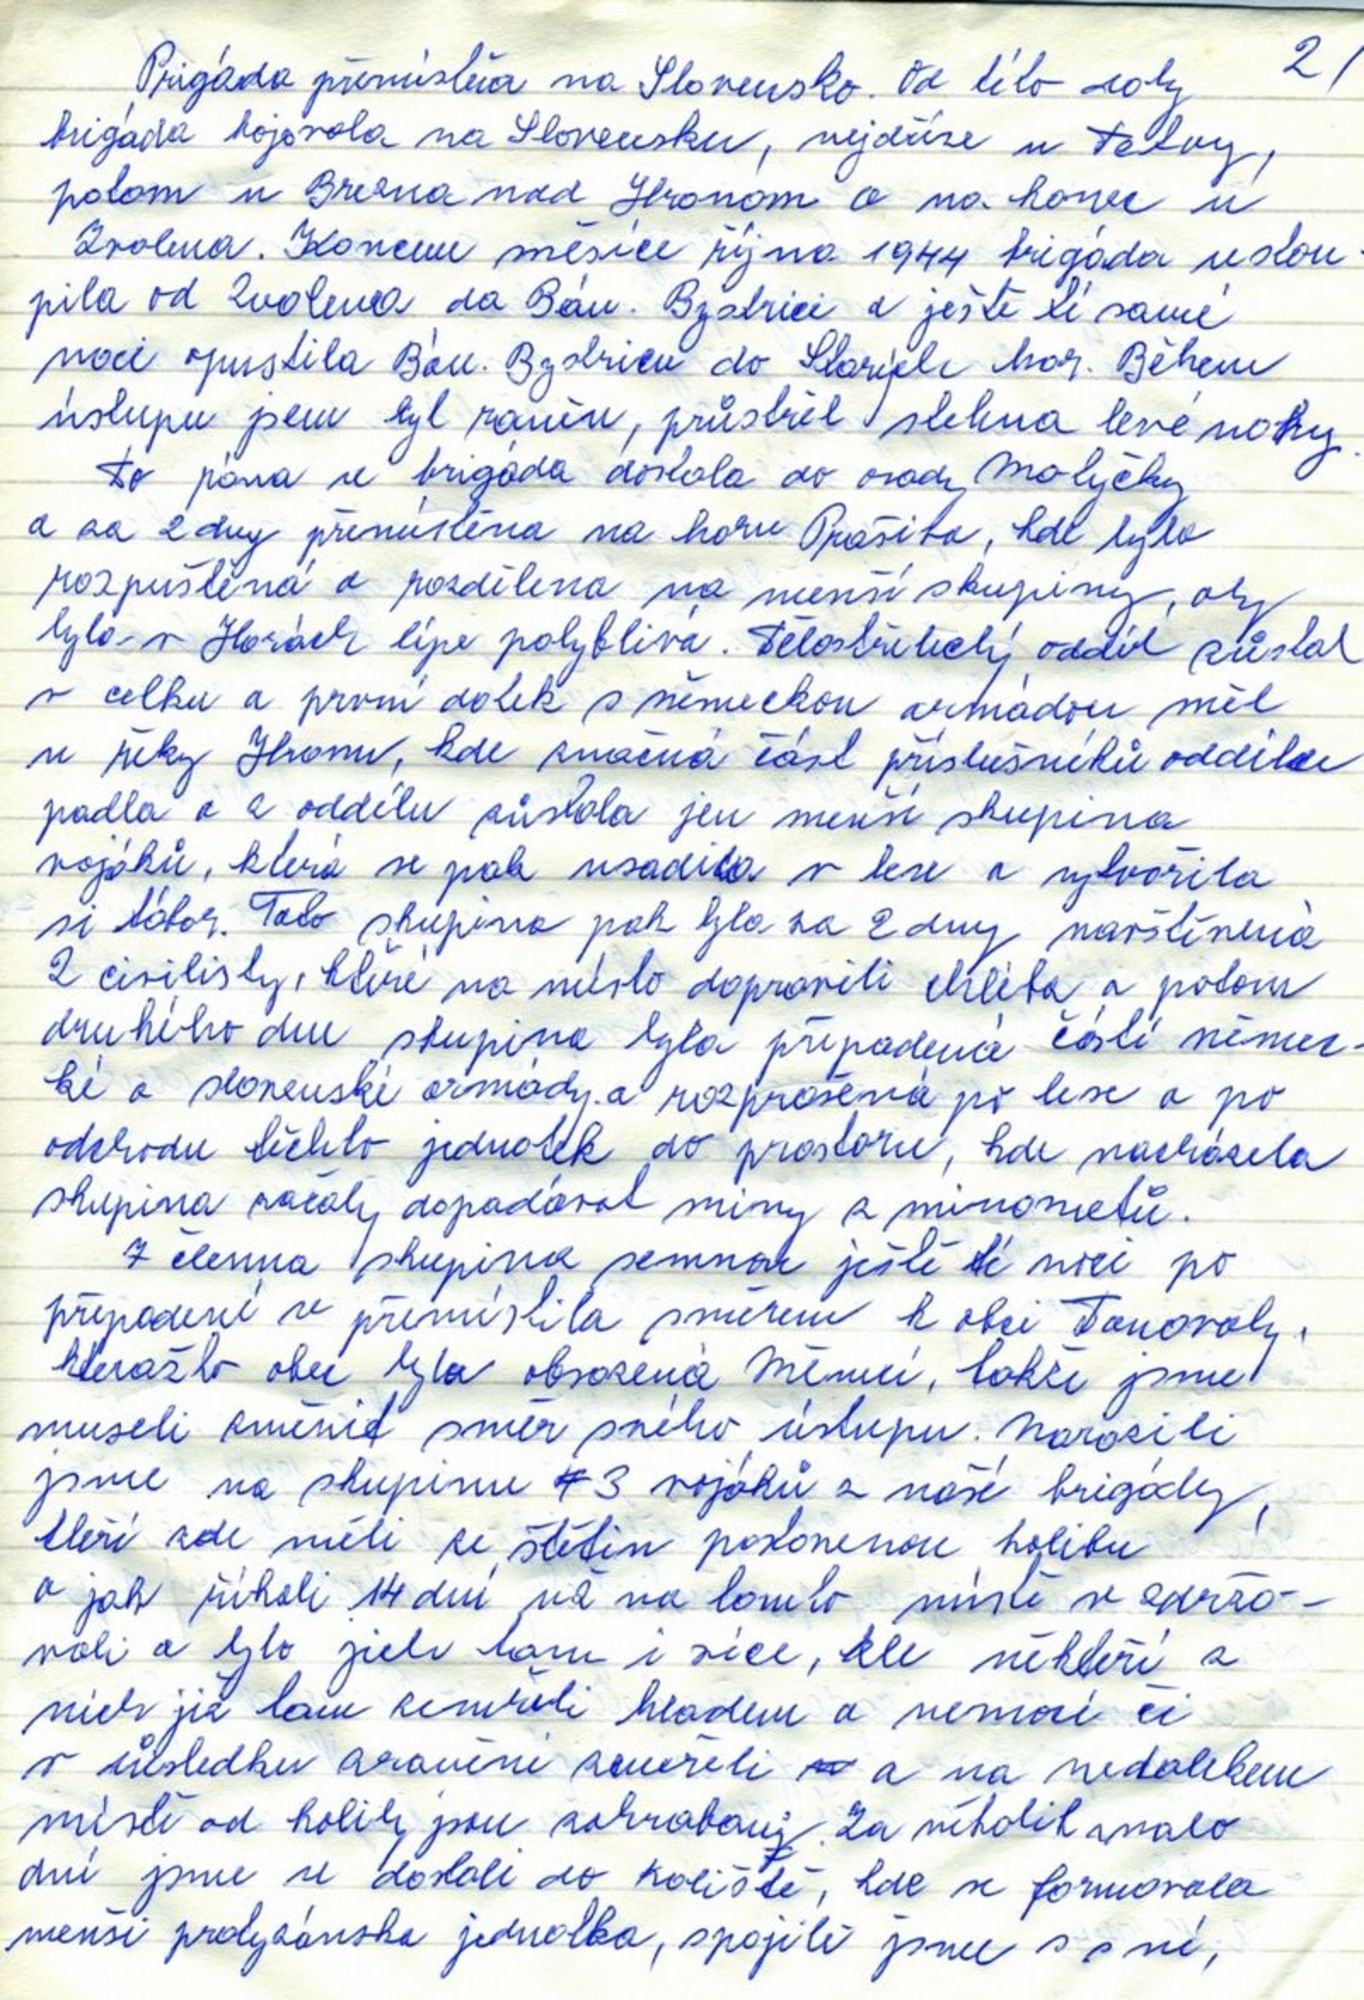 2/
Brigáda přemístěna na Slovensko. Od této doby
brigáda bojovala na Slovensku, nejdříve u Detvy,
potom u Brezna nad Hronom a na konec u
Zvolena. Koncem měsíce října 1944 brigáda ustou-
pila od Zvolena do Báň. Bystrici a ješte té samé
noci opustila Báň. Bystricu do Starých hor. Během
ústupu jsem byl raněn, průstřel stehna levé nohy.
Do rána se brigáda dostala do osady Molyčky
a za 2 dny přemístěna na horu Prašiva, kde byla
rozpuštěná a rozdělena na menší skupiny, aby
byla v Horách lépe pohyblivá. Dělostřelecký oddíl zůstal
v celku a první dotek s německou armádou měl
u řeky Hronu, kde značná část příslušníků oddílu
padla a z oddílu zůstala jen menší skupina
vojáků, která se pak usadila v lese a vytvořila
si tábor. Tato skupina pak byla za 2 dny navštívená
2 civilisty, které na místo dopravili chléba a potom
druhého dne skupina byla přepadená částí němec-
ké a slovenské armády a rozprášená po lese a po
odchodu těchto jednotek do prostoru, kde nacházela
skupina začaly dopadávat miny z minometů.
7 členna skupina semnou ještě té noci po
přepadení se přemístila směrem k obci Donovaly,
kterážto obec byla obsazená Němci, takže jsme
museli změnit směr svého ústupu. Narazili
jsme na skupinu 3 vojáků z naší brigády,
kteří zde měli ze štětin postavenou kolibu
a jak říkali 14 dní už na tomto místě se zdržo-
vali a bylo jich tam i více, ale někteří z
nich již tam zemřeli hladem a nemocí či
v důsledku zranění zemřeli a na nedalekem
místě od koliby jsou zahrabaný. Za několik málo
dní jsme se dostali do Kališťě, kde se formovala
menší prtyzánska jednotka, spojili jsme s s ní,